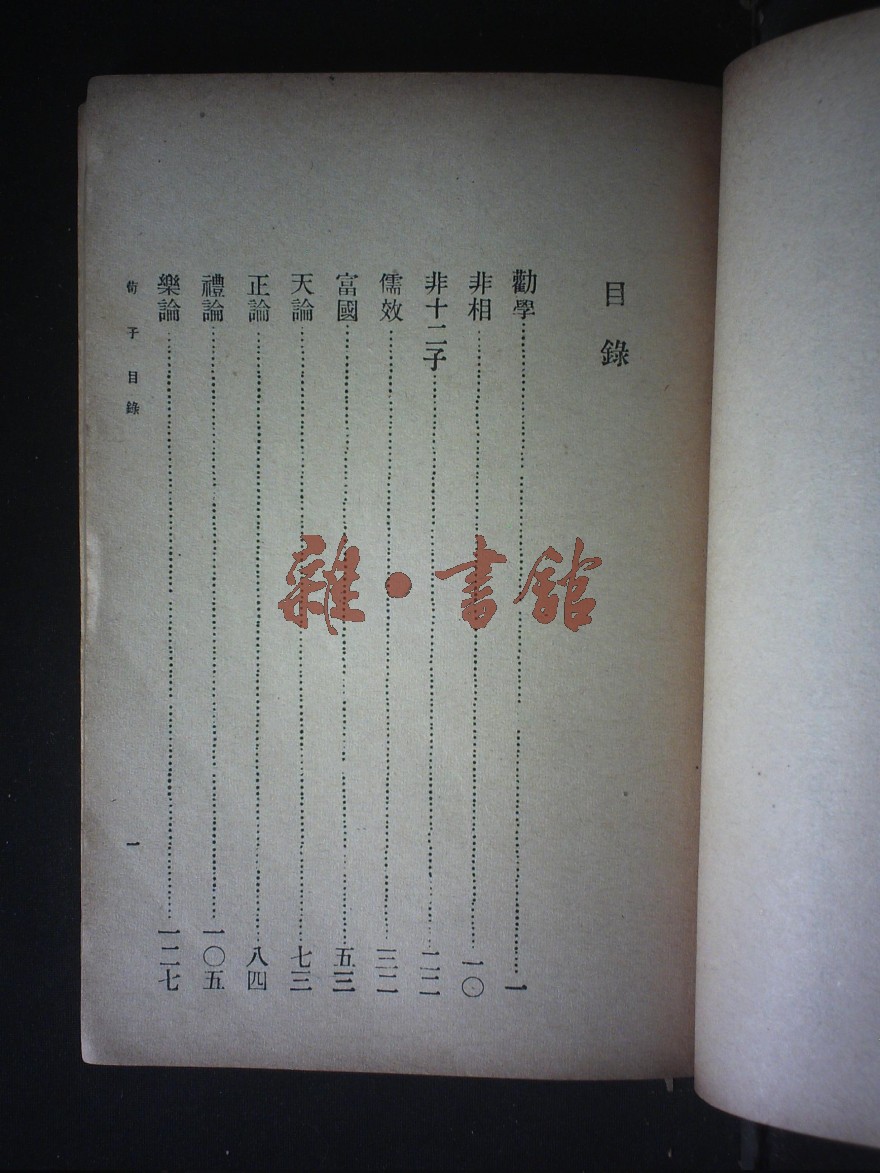 目錄
勸學……一
非相……一〇
非十二子……二二
儒效……三二
富國……五三
天論……七三
正論……八四
禮論……一〇五
樂論……一二七
荀子目錄
一
雜·書館